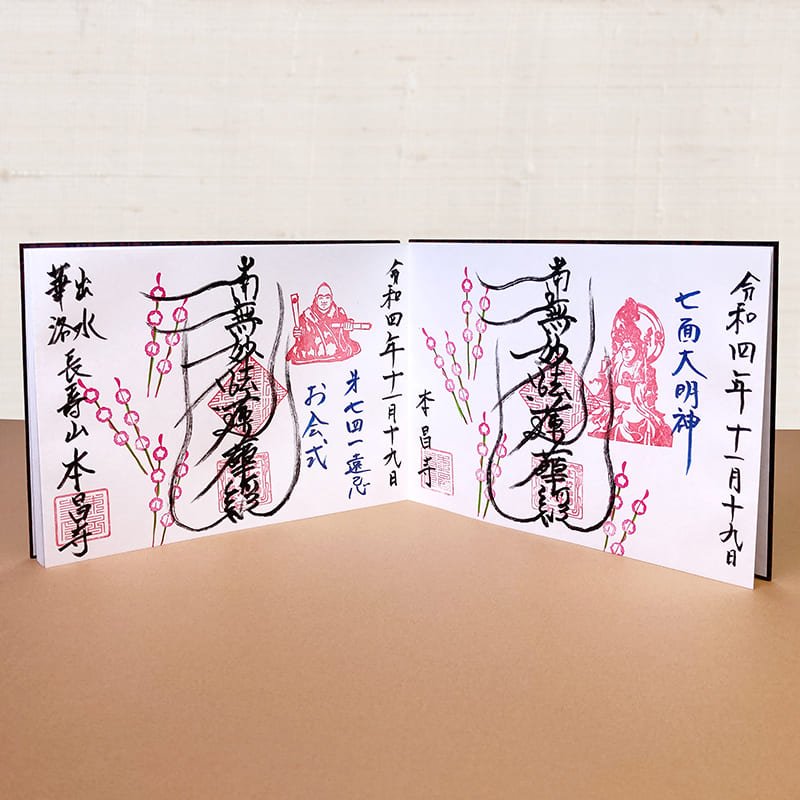 令和四年十一月十九日
七面大明神
南無妙法蓮華経
本昌寺
令和四年十一月十九日
第七四一遠忌
お会式
南無妙法蓮華経
出水
華洛 長寿山 本昌寺